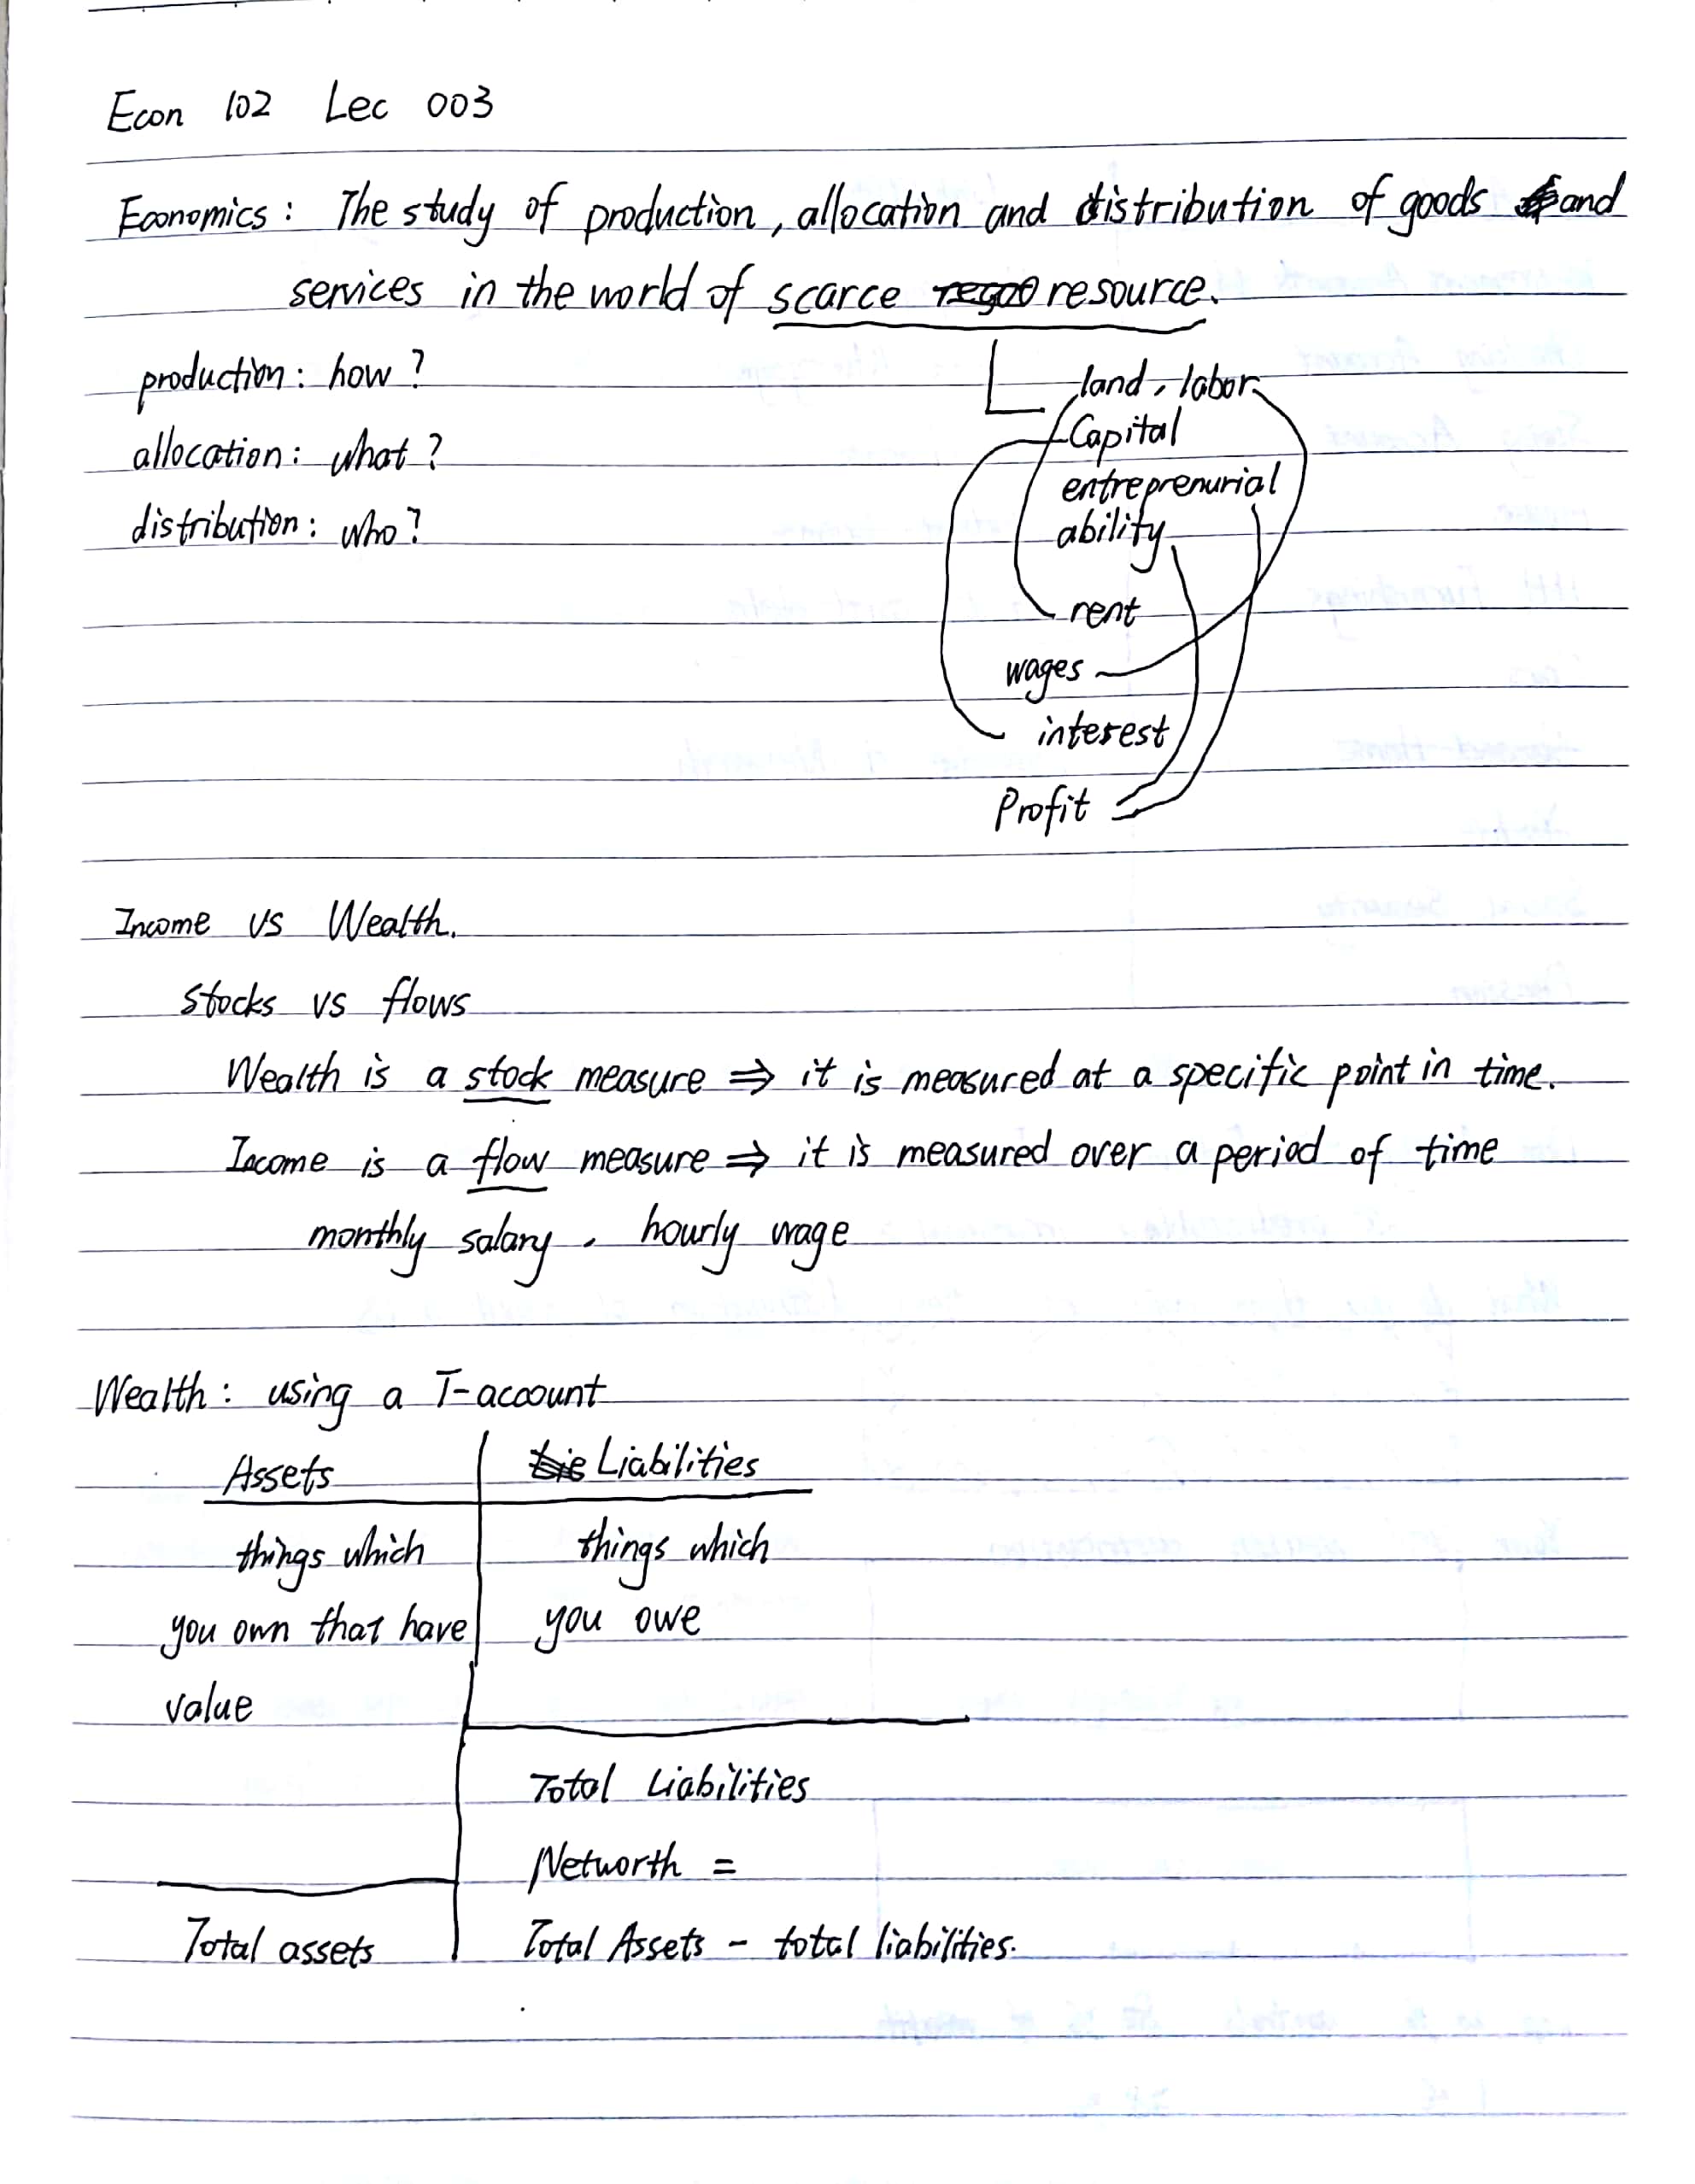 Econ 102 Lec 003
Economics: The study of production, allocation and distribution of goods and
services in the world of scarce resource.
production: how?
allocation: what?
distribution: who?
land, labor
Capital
entreprenurial
ability
rent
wages
interest
Profit
Income vs Wealth.
Stocks vs flows
Wealth is a stock measure ⇒ it is measured at a specific point in time.
Income is a flow measure ⇒ it is measured over a period of time
monthly salary, hourly wage
Wealth: using a T-account
Assets
things which
you own that have
value
Total assets
Liabilities
things which
you owe
Total Liabilities
Networth =
Total Assets - total liabilities.